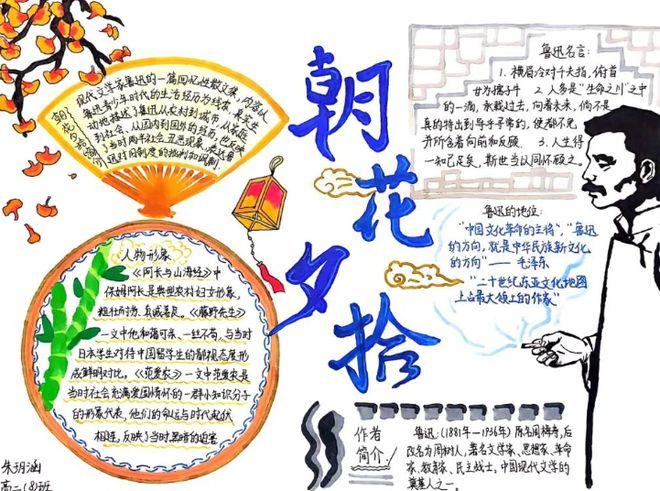 朝花夕拾
现代文学家鲁迅的一篇回忆性散文集,内容以
鲁迅青少年时代的生活经历为线索,真实生
动地描述了鲁迅从农村到城市,从家庭
到社会,从国内到国外的经历,
当时两半社会
迅对旧制度的批判和讽刺
人物形象
《阿长与山海经》中
保姆阿长是典型农村妇女形象,
粗壮耐劳、真诚善良。《藤野先生》
一文中他和蔼可亲、一丝不苟,与当时
日本学生对待中国留学生的鄙视态度形
成鲜明对比。《范爱农》一文中范爱农是
当时社会充满爱国情怀的一群小知识分子
的形象代表,他们的命运与时代起伏
相连,反映了当时黑暗的迫害
鲁迅名言:
1. 横眉冷对千夫指,俯首
甘为孺子牛 2. 人多是“生命之川”之中
的一滴,承载过去,向着未来,倘不是
真的特出到寻乎寻常的,便都不免
并所含着向前和反顾 3. 人生得
一知己足矣,斯世当以同怀顾之。
鲁迅的地位:
“中国文化革命的主将”,“鲁迅
的方向,就是中华民族新文化
的方向”——毛泽东
“二十世纪东亚文化地图
上占最大领土的作家”
作者
简介:
鲁迅:(1881年—1936年)原名周樟寿,后
改名为周树人,著名文学家、思想家、革命
家、教育家、民主战士,中国现代文学的
奠基人之一。
朱玥涵
高二(8)班